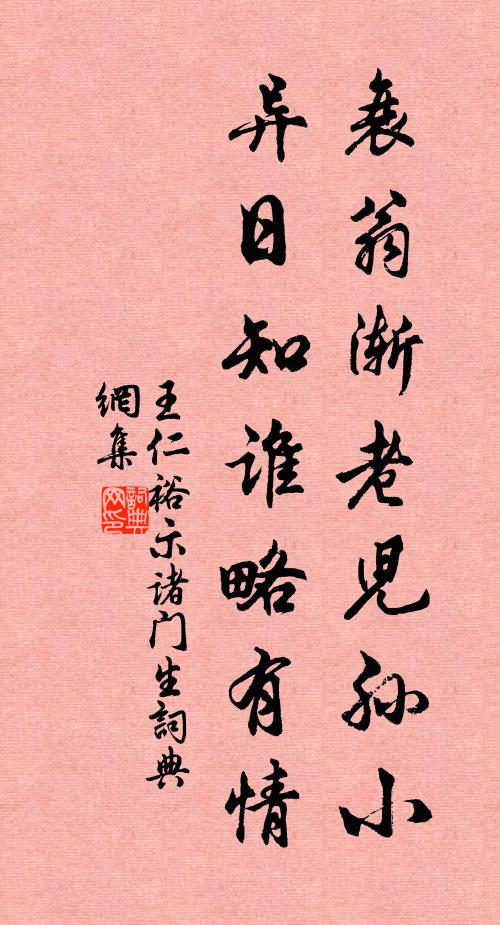 衰翁渐老児孙小
异日知谁略有情
王仁裕示诸门生詞典
網集
詞典网印